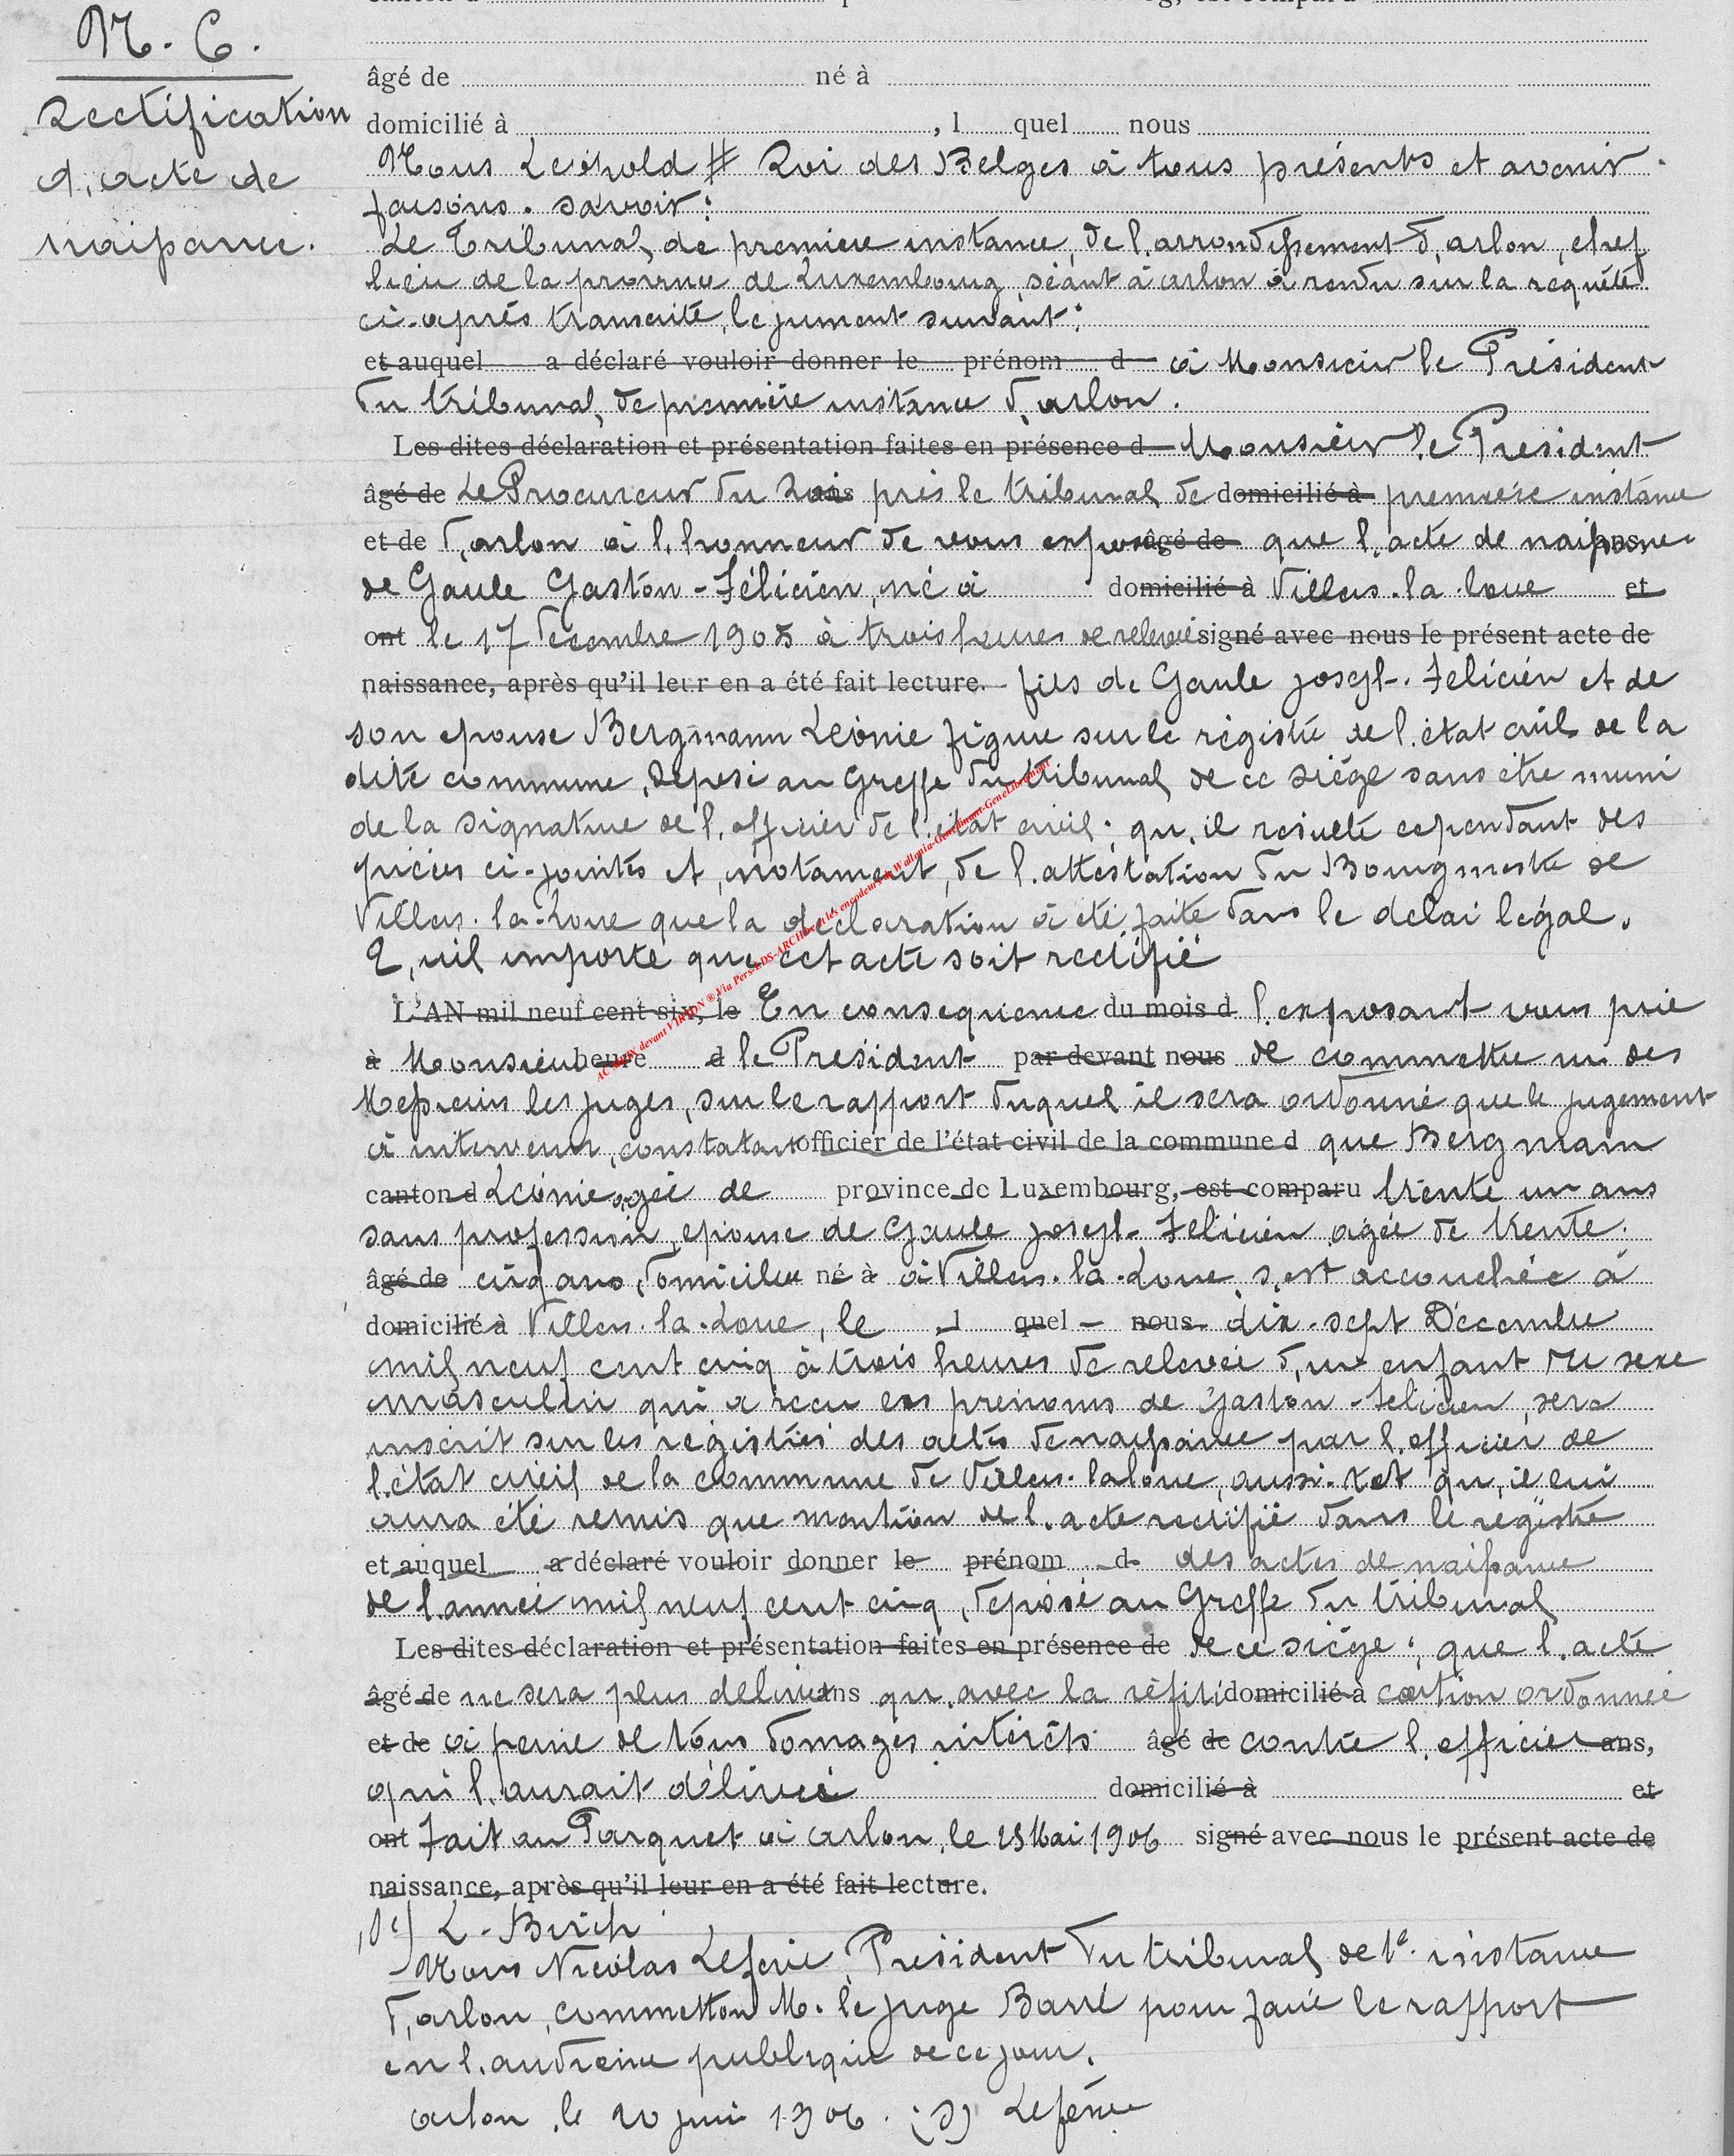 N. C.
Rectification
d'acte de
naissance.
âgé de né à
domicilié à , l quel nous
Nous Léopold II Roi des Belges à tous présents et avenir
faisons. savoir:
Le Tribunal de premiere instance, de l'arrondissement d'arlon, chef
lieu de la province de Luxembourg, séant à arlon à rendu sur la requête
ci-après transcrite, le jument suivant:
et auquel a déclaré vouloir donner le prénom d à Monsieur le Président
du tribunal de première instance d'arlon.
Les dites déclaration et présentation faites en présence d Monsieur le President
âgé de Le Procureur du Roi ans près le tribunal de domicilié à première instance
et de d'arlon à l'honneur de vous expose âgé de que l'acte de naissance ans,
de Gaule Gaston-Félicien, né à domicilié à Villers-la-loue et
ont le 17 Decembre 1905 à trois heures de relevée signé avec nous le présent acte de
naissance, après qu'il leur en a été fait lecture. fils de Gaule Joseph-Felicien et de
son epouse Bergmann Léonie figure sur le régistre de l'état civil de la
dite commune, déposé au Greffe du tribunal de ce siége sans être muni
de la signature de l'officier de l'état civil; qu'il resulte cependant des
pièces ci-jointes et, notament, de l'attestation du Bourgmestre de
Villers-la-Loue que la déclaration à été faite dans le delai légal.
Qu'il importe que cet acte soit rectifié
L'AN mil neuf cent six, le En consequence du mois d l'exposant vous prie
à Monsieur heure d le Président par devant nous de commettre un des
Messieurs les juges, sur le rapport duquel il sera ordonné que le jugement
à intervenir, constatant officier de l'état civil de la commune d que Bergmann
canton d Léonie agée de province de Luxembourg, est comparu trente un ans
sans profession, epouse de Gaule Joseph-Felicien agée de trente.
âgé de cinq ans, domiciliée né à à Villers-la-Loue s'est accouchée à
domicilié à Villers-la-Loue, le l quel nous dix-sept Décembre
mil neuf cent cinq à trois heures de relevée d'un enfant du sexe
masculin qui a recu les prénoms de Gaston-Felicien, sera
inscrit sur les régistres des actes de naissance par l'officier de
l'état civil de la commune de Villers-laloue, aussi-tot qu'il lui
aura été remis que mention de l'acte rectifié dans le régistre
et auquel a déclaré vouloir donner le prénom d des actes de naissance
de l'année mil neuf cent cinq, déposé au Greffe du tribunal
Les dites déclaration et présentation faites en présence de de ce siége; que l'acte
âgé de ne sera plus delivré ans qu'avec la domicilié à ordonnée
et de à peine de tous domages intérêts âgé de contre l'officier ans,
qui l'aurait délivré domicilié à et
ont Fait au Parquet à arlon, le 15 Mai 1906 signé avec nous le présent acte de
naissance, après qu'il leur en a été fait lecture.
L. Birch
Nous Nicolas Leferie, President du tribunal de 1e. instance
d'arlon, commetton M. le juge Barré pour faire le rapport
en l'audience publique de ce jour.
arlon, le 20 juin 1906. (s)